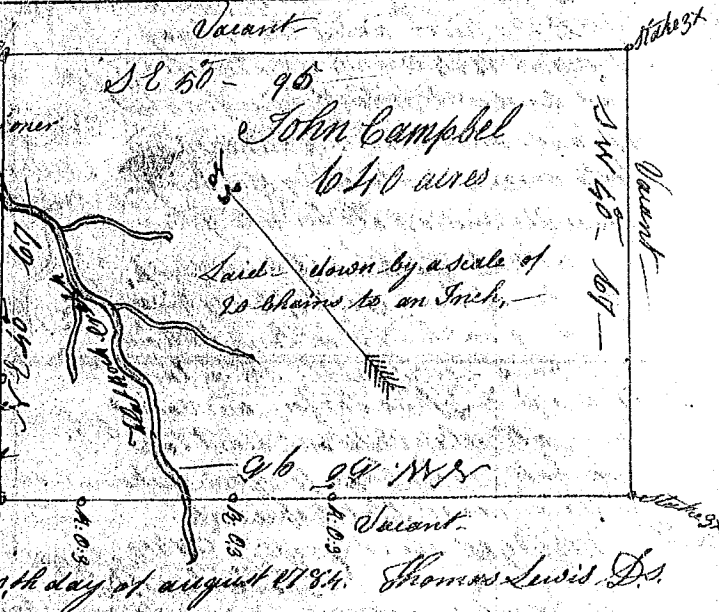 Vacant
Stake 3x
S E 50 - 95
John Campbel
640 acres
S W 40 - 67 -
Vacant
Laid down by a scale of
20 Chains to an Inch,
67
95
Vacant
Stake 3x
R.O 3
R.O 3
R.O 3
th day of august 1784. Thomas Lewis D.S.